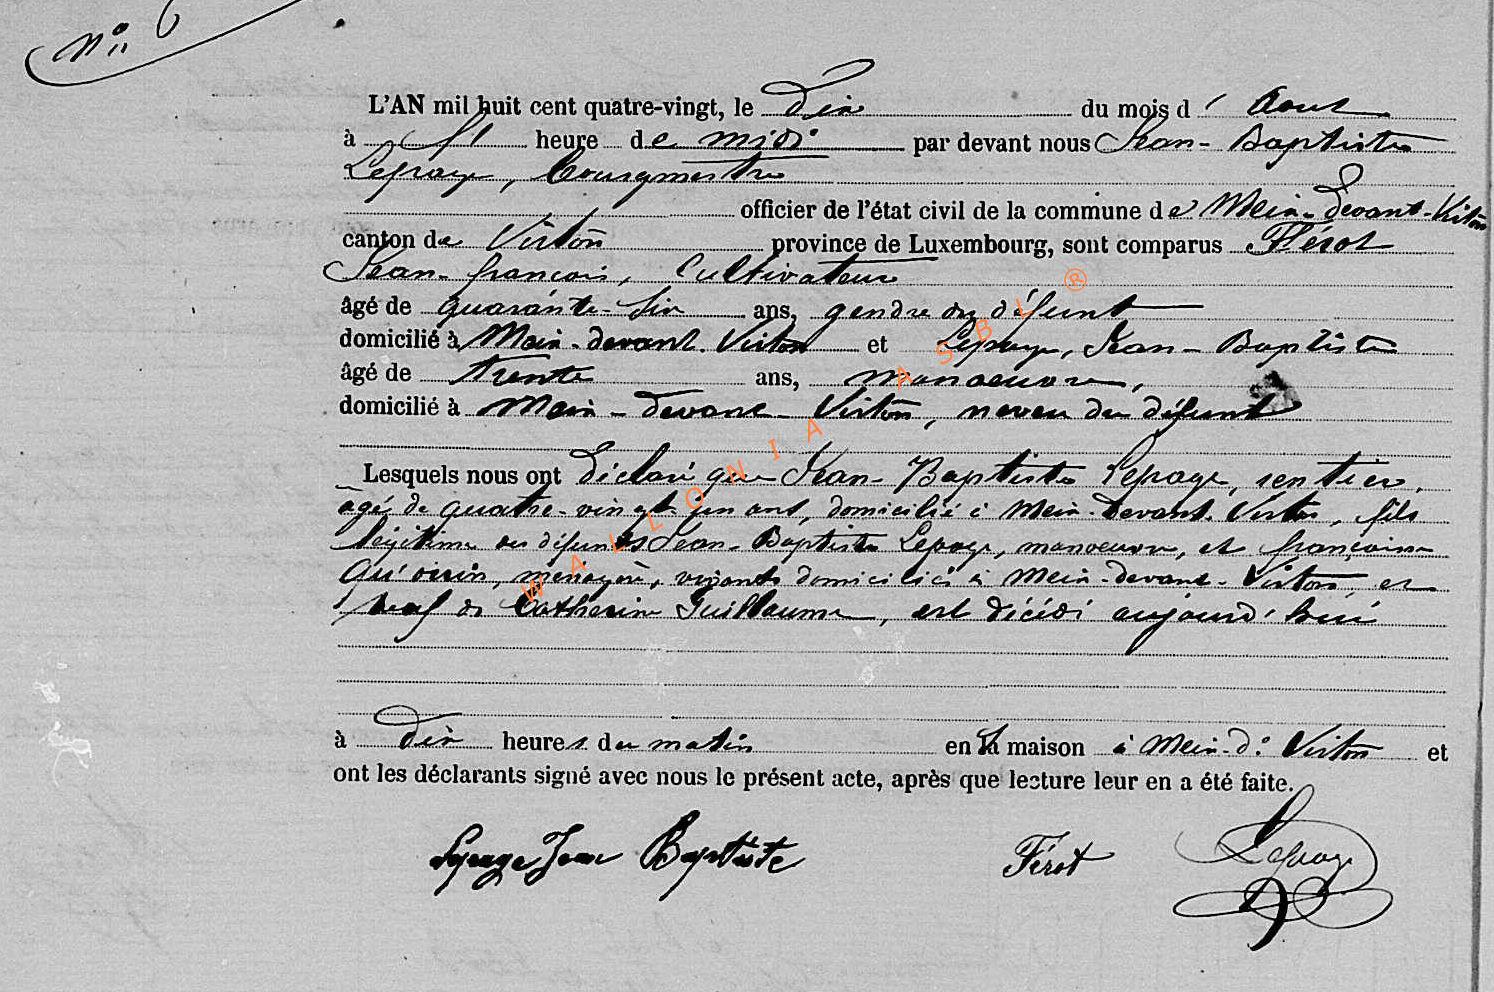 N° 6
L'AN mil huit cent quatre-vingt, le Dix du mois d' Aout
à 11 heure de midi par devant nous Jean-Baptiste
Lepage, bourgmestre
officier de l'état civil de la commune de Meix-Devant-Virton
canton de Virton province de Luxembourg, sont comparus Férot
Jean-françois, Cultivateur
âgé de quarante-six ans, gendre du défunt
domicilié à Meix-devant-Virton et Lepage, Jean-Baptiste
âgé de trente ans, manoeuvre,
domicilié à Meix-devant-Virton, neveu du défunt
Lesquels nous ont déclaré que Jean-Baptiste Lepage, rentier,
âgé de quatre-vingt-un ans, domicilié à Meix-Devant-Virton, fils
légitime des défunts Jean-Baptiste Lepage, manoeuvre, et françoise
ménagère, vivants domiciliés à Meix-devant-Virton, et
veuf de Catherine Guillaume, est décédé aujourd'hui
à dix heures du matin en sa maison à Meix-dt Virton et
ont les déclarants signé avec nous le présent acte, après que lecture leur en a été faite.
Lepage Jean Baptiste Férot Lepage
WALLONIA ASBL ®